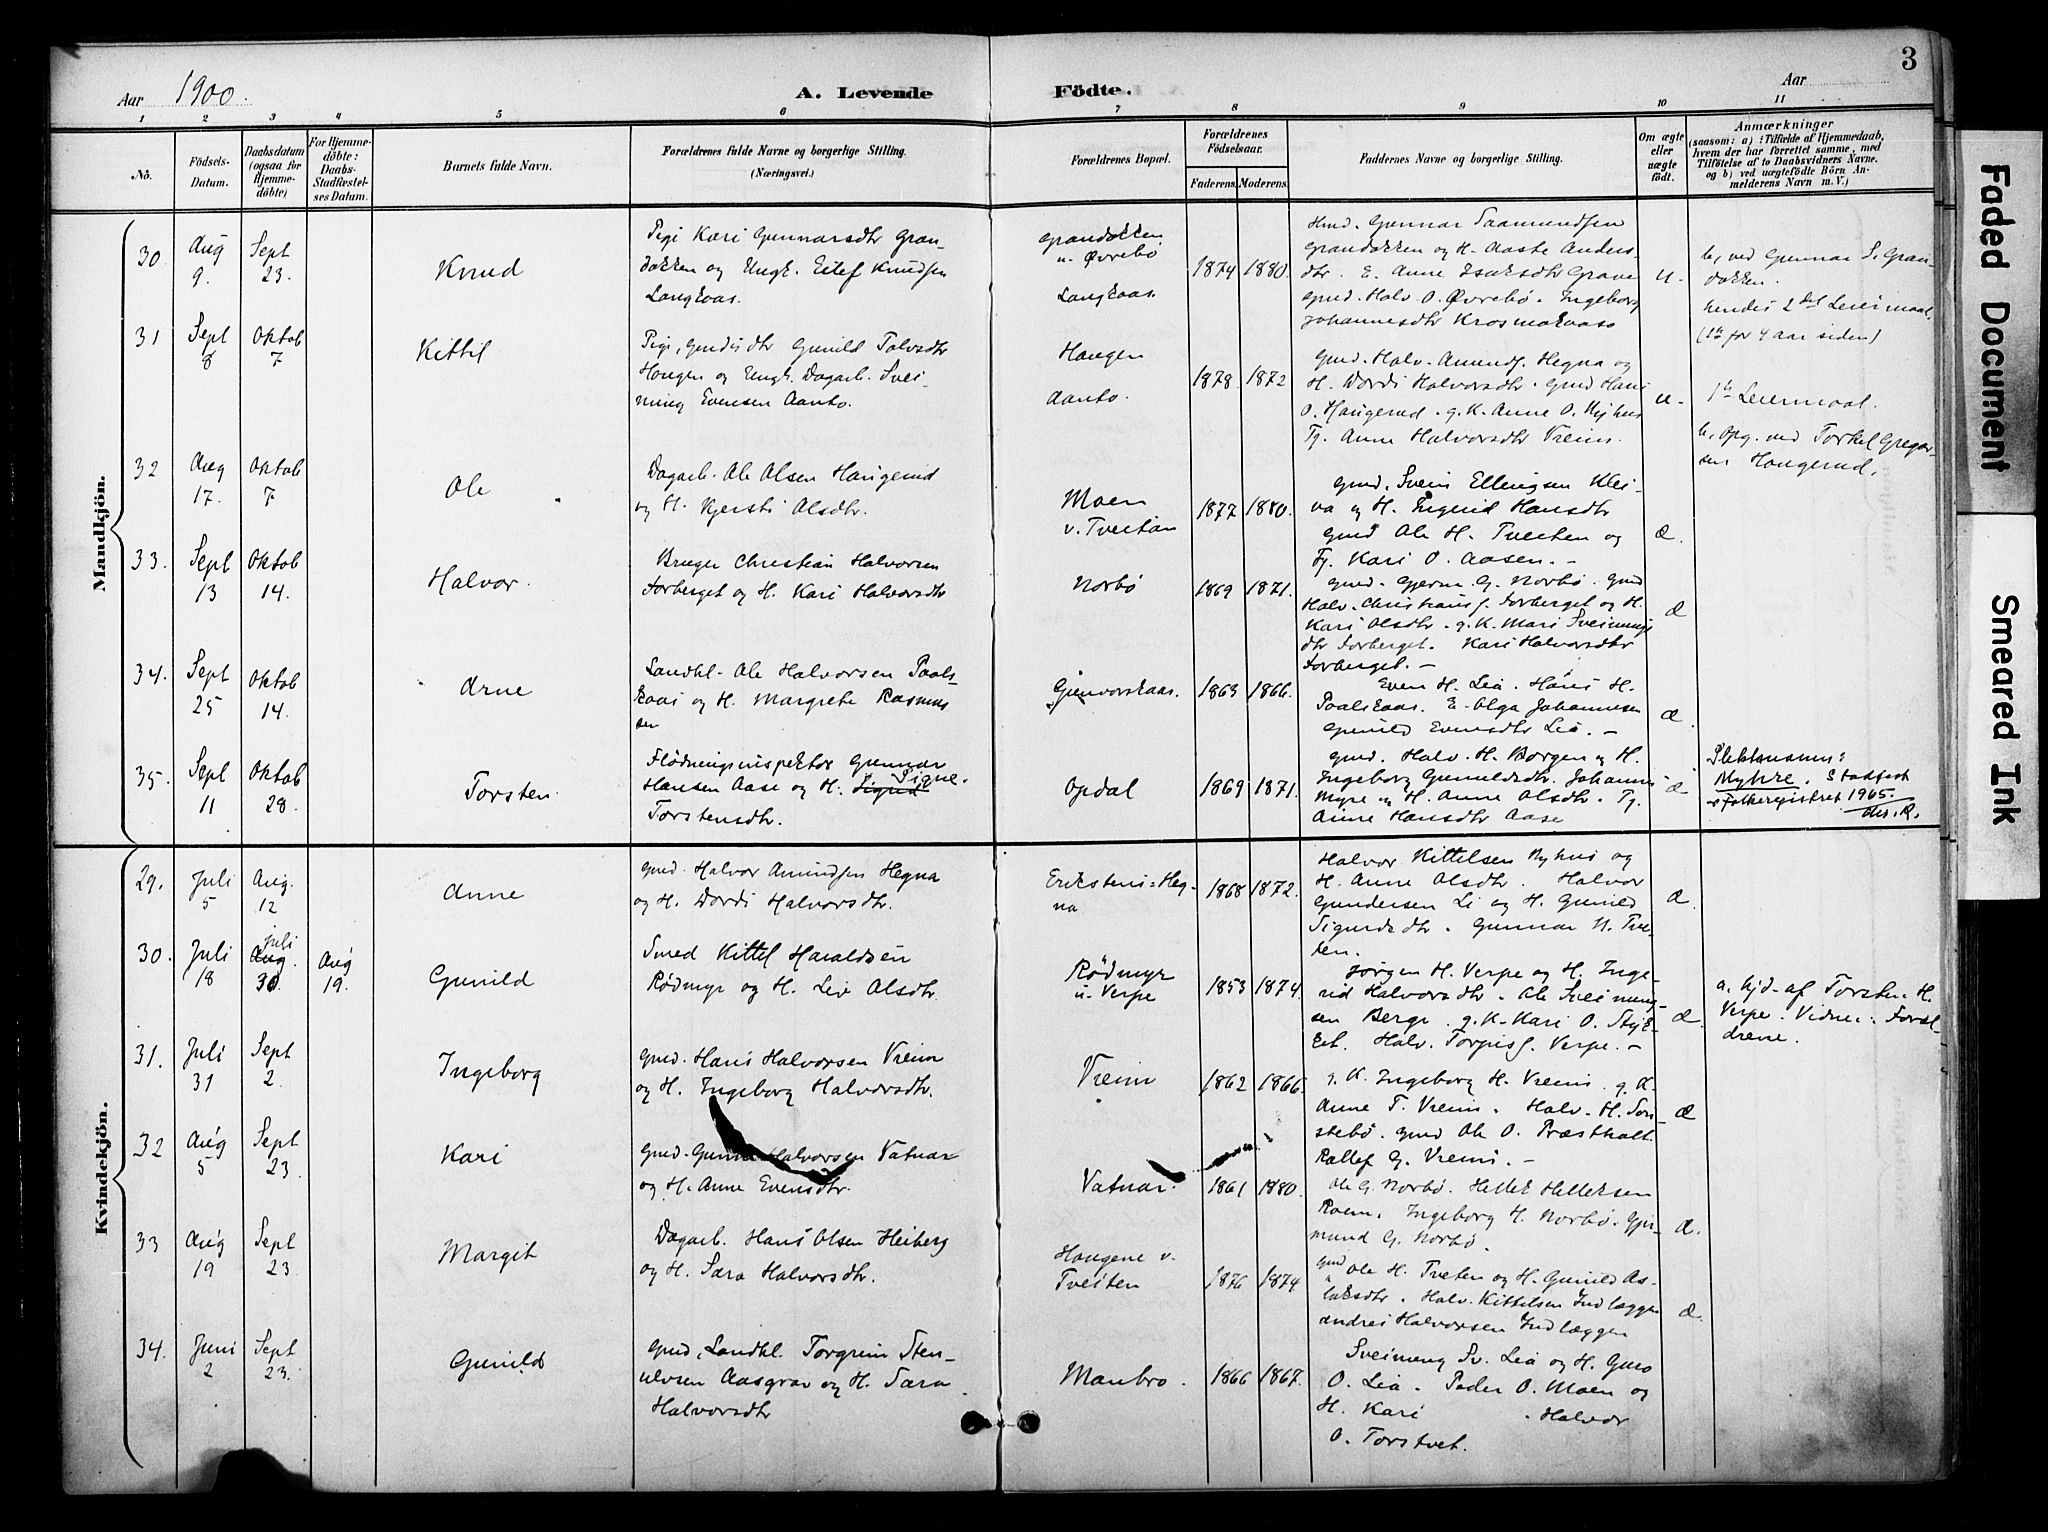 3
Aar 1900.
A. Levende
Födte.
Aar
1 2 3 4 5 6 7 8 9 10 11
No.
Födsels-
Datum.
Daabsdatum
(ogsaa for
Hjemme-
döbte)
For Hjemme-
döbte:
Daabs-
Stadfæstel-
ses Datum.
Barnets fulde Navn.
Forældrenes fulde Navne og borgerlige Stilling.
(Næringsvei.)
Forældrenes Bopæl.
Forældrenes
Födselsaar.
Faderens. Moderens.
Faddernes Navne og borgerlige Stilling.
Om ægte
eller
uægte
født.
Anmærkninger
(saasom: a) i Tilfælde af Hjemmedaab,
hvem der har forrettet samme, med
Tilföielse af to Daabsvidners Navne,
og b) ved uægtefödte Börn An-
melderens Navn m. V.)
Mandkjön.
30.
Aug
9.
Sept
23.
Knud
Pige Kari Gunnarsdtr Gran-
dokken og Ungk. Eilef Knudsen
Langkaas.
Grandokken
u. Øvrebø
Langkaas.
1874 1880.
Hmd. Gunnar Saamundsen
Grandokken og H. Aaste Anders-
dtr. E. Anne Isaksdtr Grave
gmd. Halv. O. Øvrebø. Ingeborg
Johannesdtr Krosmokaasa
u.
b, ved Gunnar S. Gran-
dokken.
hendes 2det Leiermaal.
(1te for 4 aar siden)
31
Sept
8
Oktob
7
Kittil
Pige, Gmdsdtr Gunild Talvsdtr
Haugen og Ungk. Dagarb. Svei-
nung Evensen Aanto.
Haugen
Aanto.
1878. 1872
Gmd. Halv. Amunds. Hegna og
H. Dordi Halvorsdtr. Gmd Hans
O. Haugerud. g. K. Anne O. Nyhus
Tj. Anne Halvorsdtr Vreim.
u.
1te Leiermaal.
b, Opg. ved Torkel Gregar-
sen Haugerud.
32
Aug
17.
Oktob
7.
Ole
Dagarb. Ole Olsen Haugerud
og H. Kjersti Olsdtr.
Moen
v. Tveitan
1877 1880.
gmd. Svein Ellingsen Klei-
va og H. Ingerid Hansdtr
gmd Ole H. Tveiten og
Tj. Kari O. Aasen. -
Æ.
33.
Sept
13
Oktob
14.
Halvor.
Bruger Christian Halvorsen
Forberget og H. Kari Halvorsdtr
Norbø
1869 1871.
gmd. Gjerm. G. Norbø. Gmd
Halv. Christians. Forberget og H.
Kari Olsdtr. g. K. Mari Sveinungs
dtr Forberget. Kari Halvorsdtr
Forberget. -
Æ
34.
Sept
25
Oktob
14.
Arne
Landhl. Ole Halvorsen Paals-
kaas og H. Margrete Rasmus
sen
Gjenvorskaas.
1863 1866.
Even H. Lia. Hans H.
Paalskaas. E. Olga Johannesen
Gunild Evensdtr Lia. -
Æ.
35.
Sept
11
Oktob
28.
Torsten.
Flødningsinspektør Gunnar
Hansen Aase og H. Sigrid Signe.
Torstensdtr.
Opdal
1869 1871.
gmd. Halv. H. Borgen og H.
Ingeborg Gunuldsdtr. Johannes
Myre og H. Anne Olsdtr. Tj.
Anne Hansdtr Aase
Æ
Slektsnavn:
Myhre. Stadfest
av Folkeregistret 1965.
Kvindekjön.
29.
Juli
5
Aug.
12
Anne
gmd. Halvor Amundsen Hegna
og H. Dordi Halvorsdtr.
Eriksteins-Heg-
na
1868 1872.
Halvor Kittelsen Nyhus og
H. Anne Olsdtr. Halvor
Gundersen Li og H. Gunild
Sigurdsdtr. Gunnar N. Tvei-
ten.
Æ.
30.
Juli
18
juli
Aug.
30.
Aug
19.
Gunild
Smed Kittel Haraldsen
Rødmyr og H. Liv Olsdtr.
Rødmyr
u. Verpe
1853 1874.
Jørgen H. Verpe og H. Inge-
rid Halvorsdtr. Ole Sveinung-
sen Berge. g. K. Kari O. Styk-
Eet. Halv. Torgisss. Verpe. -
Æ.
a. hjd. af Torsten H.
Verpe. Vidner: Foræl-
drene.
31.
Juli
31
Sept
2.
Ingeborg
gmd. Hans Halvorsen Vreim
og H. Ingeborg Halvorsdtr.
Vreim
1862 1866.
g. K. Ingeborg H. Vreim. g. K.
Anne T. Vreim. Halv. H. Son-
stebø. gmd Ole O. Præstholt.
Rollef G. Vreim. -
Æ
32
Aug
5
Sept
23
Kari
Gmd. Gunnar Halvorsen Vatnar
og H. Anne Evensdtr.
Vatnar.
1861 1880.
Ole G. Norbø. Hellek Helleksen
Roem. Ingeborg H. Norbø. Gjer-
mund G. Norbø.
Æ.
33
Aug
19
Sept
23.
Margit
Dagarb. Hans Olsen Heiberg
og H. Sara Halvorsdtr.
Haugene v.
Tveiten
1876 1874
gmd Ole H. Tveten og H. Gunild As-
laksdtr. Halv. Kittelsen Indlæggen
Andres Halvorsen Indlæggen
Æ.
34.
Juni
2
Sept
23.
Gunild
Gmd, Landhl. Torgrim Sten-
ulvsen Aasgrav og H. Sara
Halvorsdtr
Manbro.
1866 1867.
Sveinung Sv. Lia og H. Guro
O. Lia. Peder O. Moen og
H. Kari . Halvor
O. Torstvet.
Faded Document
Smeared Ink